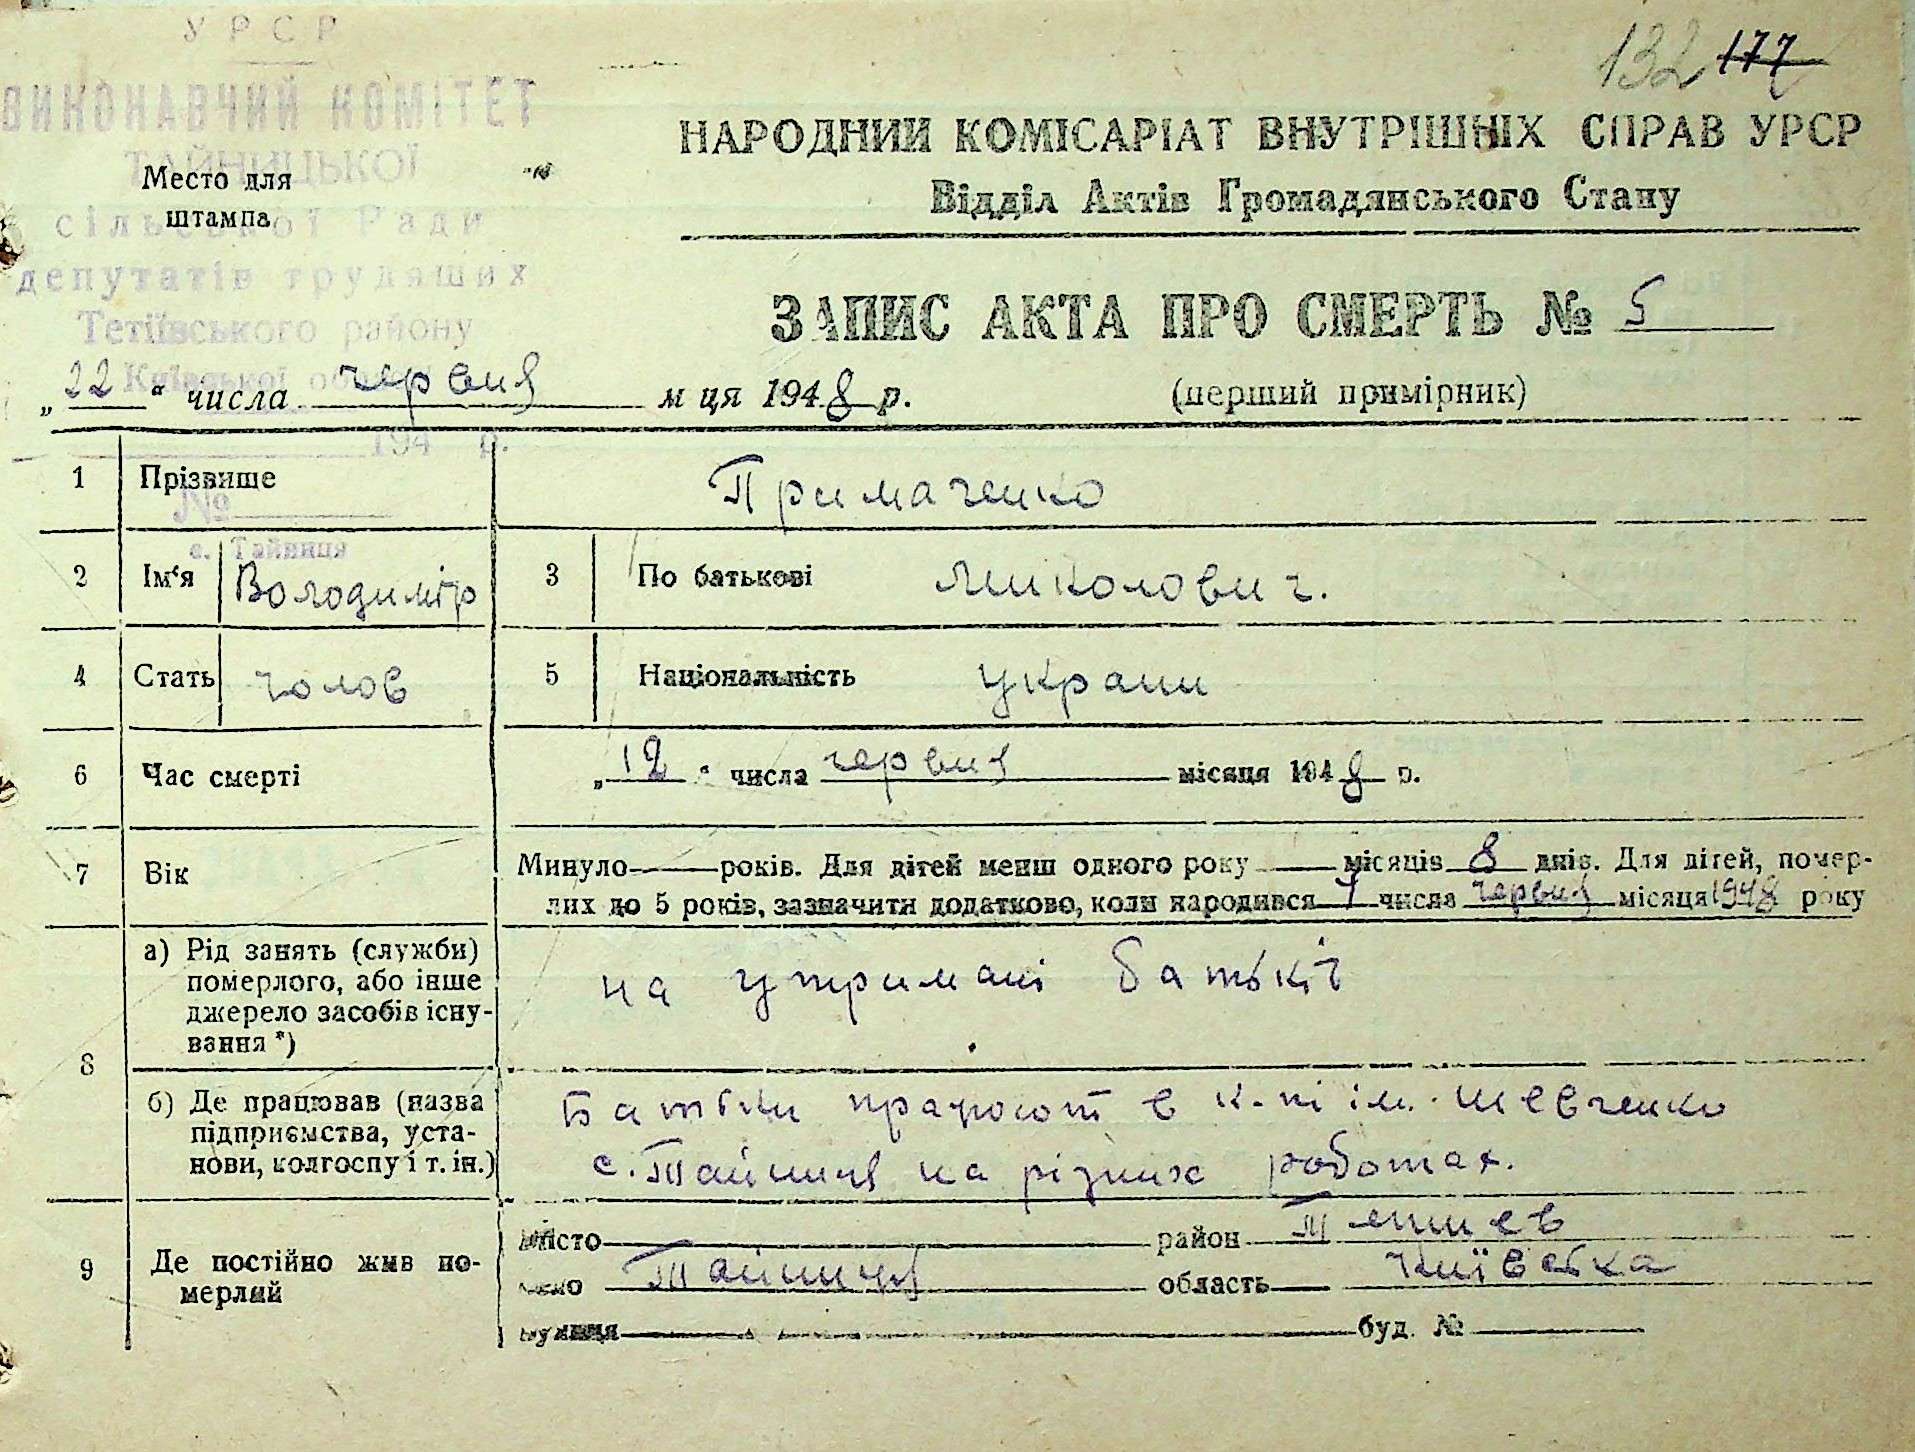 УРСР
ВИКОНАВЧИЙ КОМІТЕТ
ТАЙНИЦЬКОЇ
сільської Ради
депутатів трудящих
Тетіївського району
Київської
194 р.
№
с. Тайниця
Место для
штампа
132 177
НАРОДНИЙ КОМІСАРІАТ ВНУТРІШНІХ СПРАВ УРСР
Відділ Актів Громадянського Стану
ЗАПИС АКТА ПРО СМЕРТЬ № 5
„22“ числа червня м ця 1948 р. (перший примірник)
1 Прізвище Примаченко
2 Ім‘я Володимір 3 По батькові Миколович.
4 Стать чолов 5 Національність україн
6 Час смерті „12“ числа червня місяця 1948 р.
7 Вік Минуло — років. Для дітей менш одного року — місяців 8 днів. Для дітей, помер-
лих до 5 років, зазначити додатково, коли народився 4 числа червня місяця 1948 року
8 а) Рід занять (служби)
померлого, або інше
джерело засобів існу-
вання *)
на утримані батьків
б) Де працював (назва
підприємства, уста-
нови, колгоспу і т. ін.)
Батьки працюют в к-пі ім. Шевченко
с. Тайниця на різних роботах.
9 Де постійно жив по-
мерлий
місто район Тетиев
Тайниця область Київська
вулиця буд. №